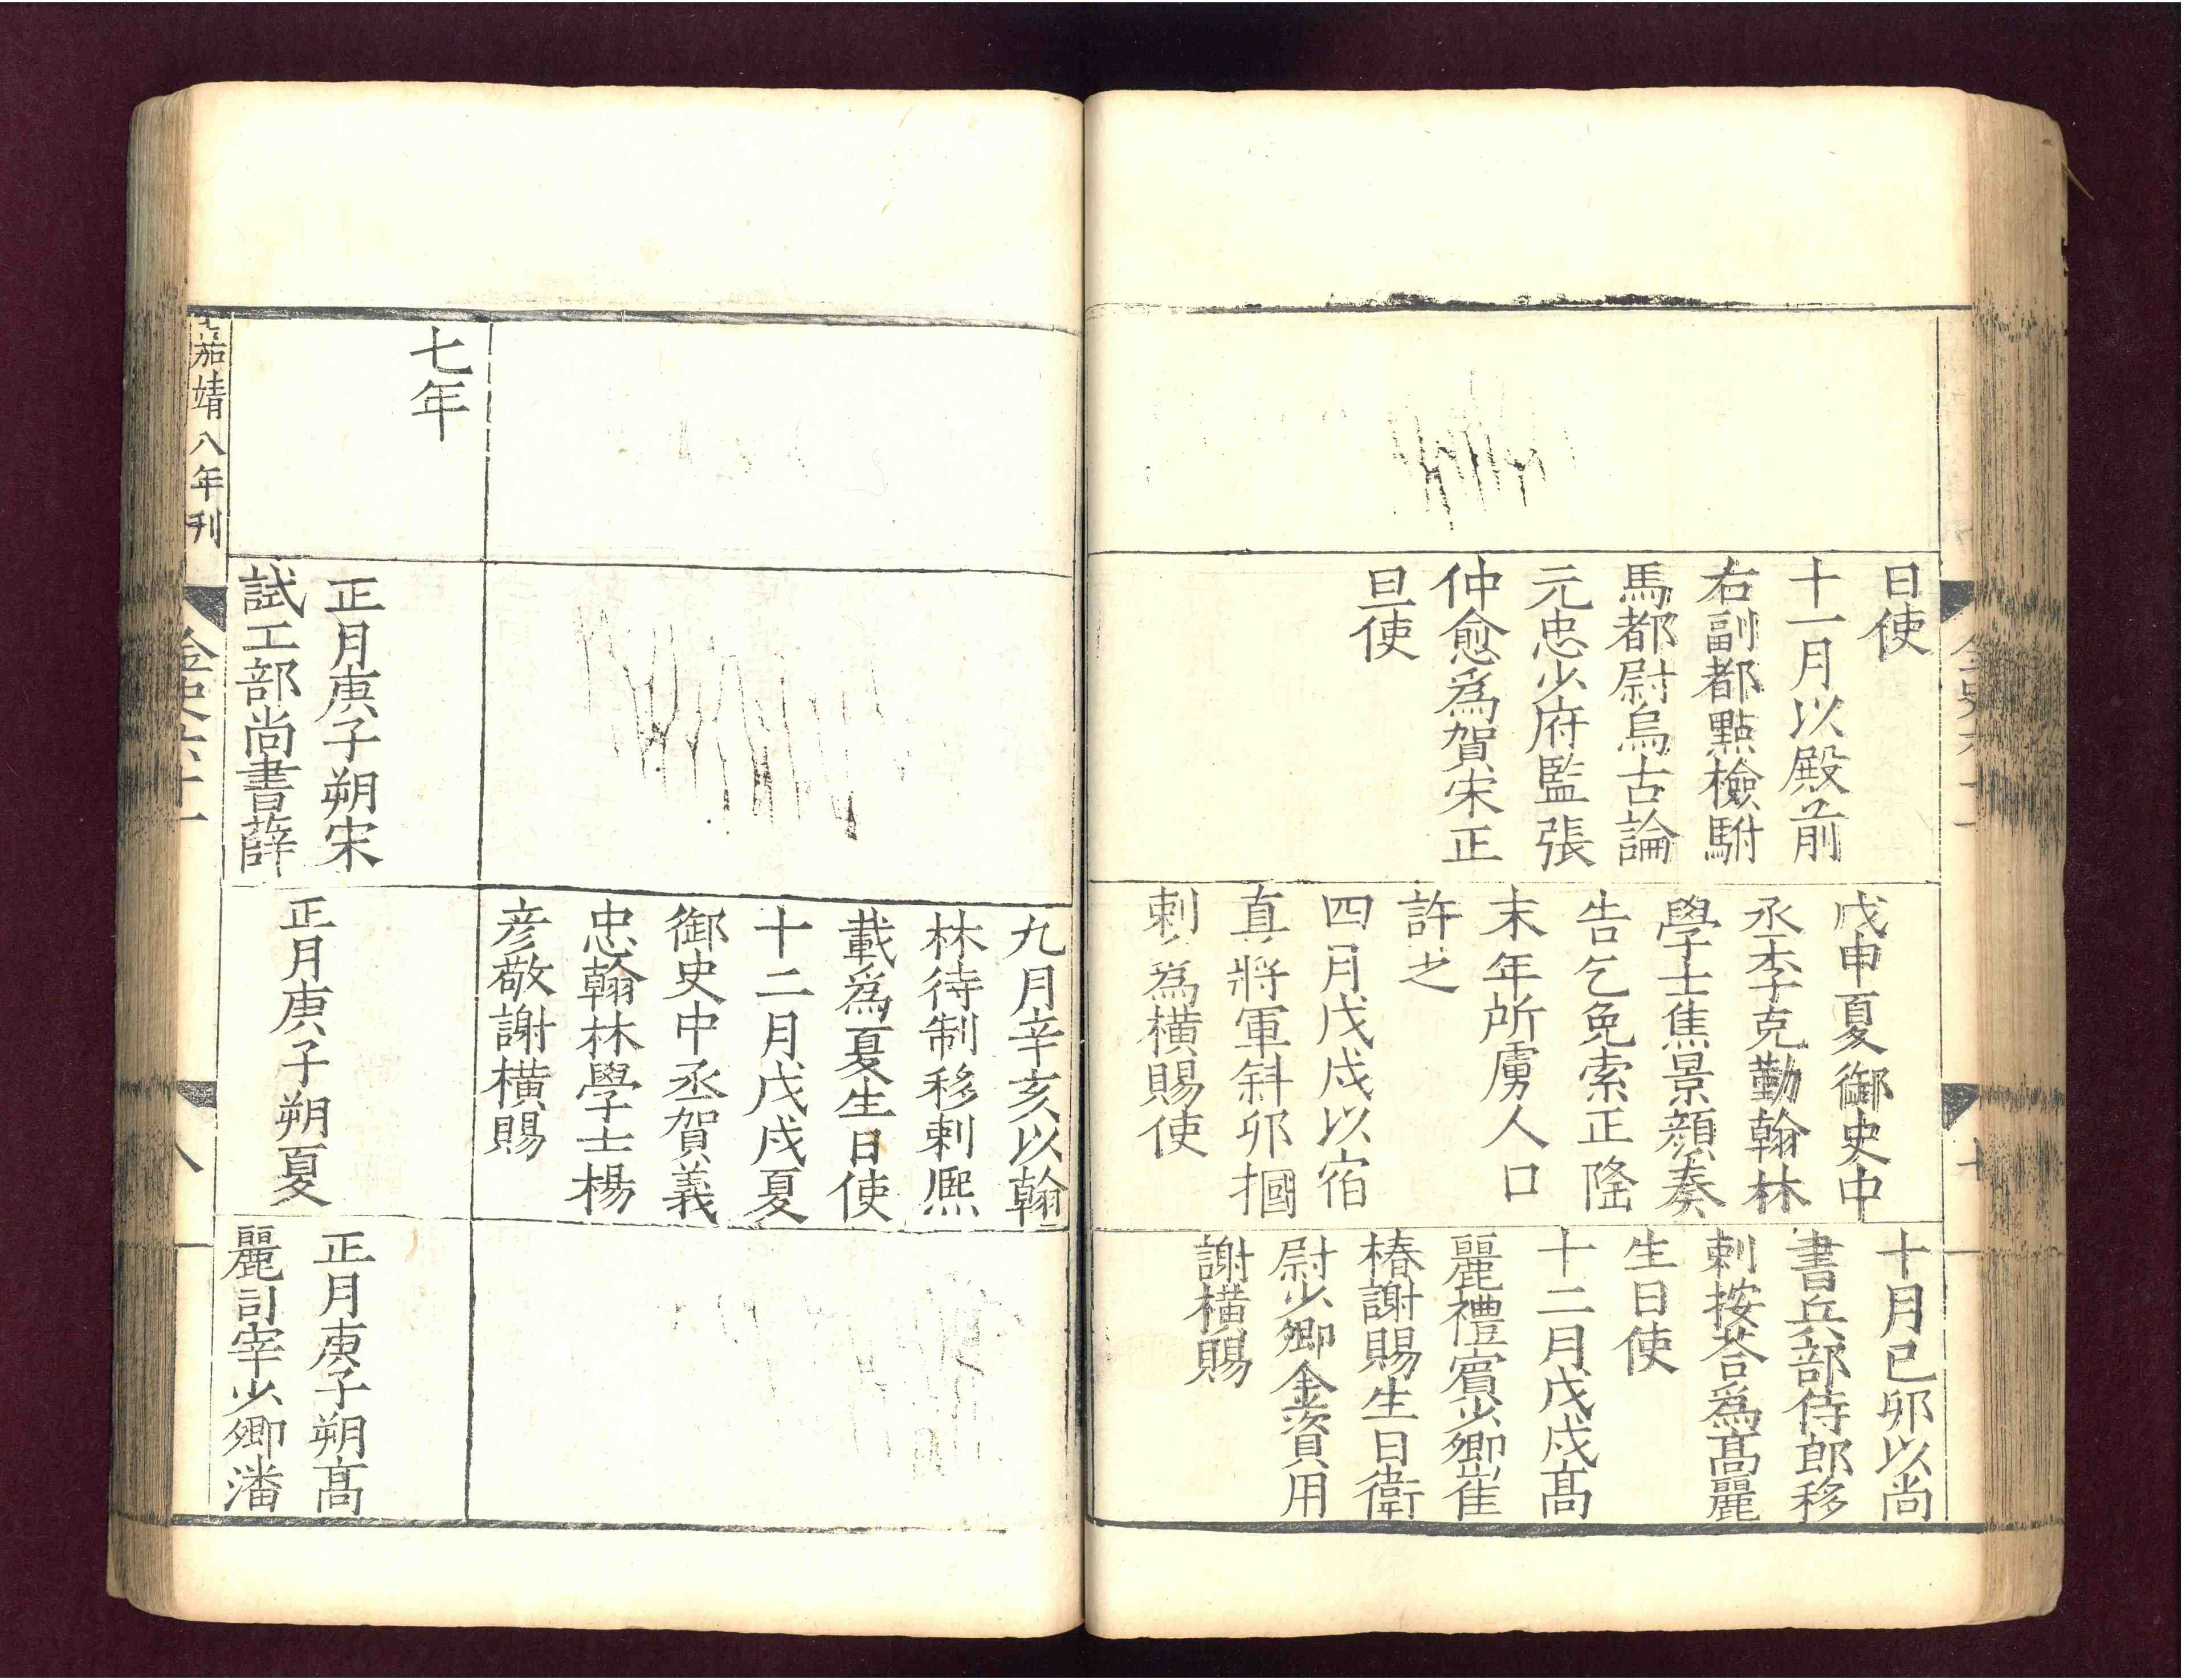 日使
十一月以殿前
右副都點檢駙
馬都尉烏古論
元忠少府監張
仲愈為賀宋正
旦使
戊申夏御史中
丞李克勤翰林
學士焦景顔奏
告乞免索正隆
末年所虜人口
許之
四月戊戌以宿
直將軍斜卯摑
剌為橫賜使
十月己卯以尚
書兵部侍郎移
剌按荅為髙麗
生日使
十二月戊戌髙
麗禮賓少卿崔
椿謝賜生日衛
尉少卿金資用
謝橫賜
九月辛亥以翰
林待制移剌熈
載為夏生日使
十二月戊戌夏
御史中丞賀義
忠翰林學士楊
彦敬謝橫賜
七年
正月庚子朔宋
試工部尚書薛
正月庚子朔夏
正月庚子朔髙
麗司宰少卿潘
嘉靖八年刊
金史六十一
八